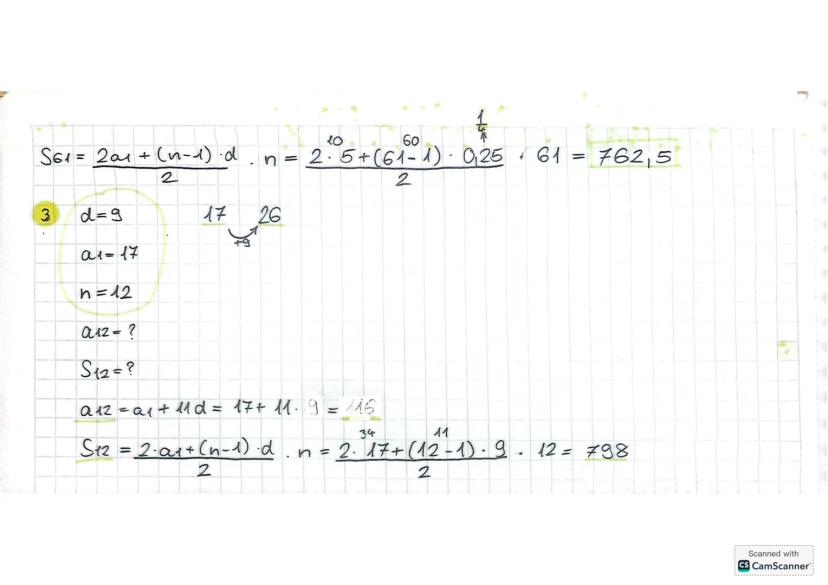 1/4
10 60
S61 = (2a1 + (n-1) · d)/2 · n = (2 · 5 + (61-1) · 0,25)/2 · 61 = 762,5
3 d=9 17 26
+9
a1=17
n=12
a12=?
S12=?
a12 = a1 + 11d = 17 + 11 · 9 = 116
34 11
S12 = (2·a1 + (n-1) · d)/2 · n = (2 · 17 + (12-1) · 9)/2 · 12 = 798
Scanned with
CS CamScanner